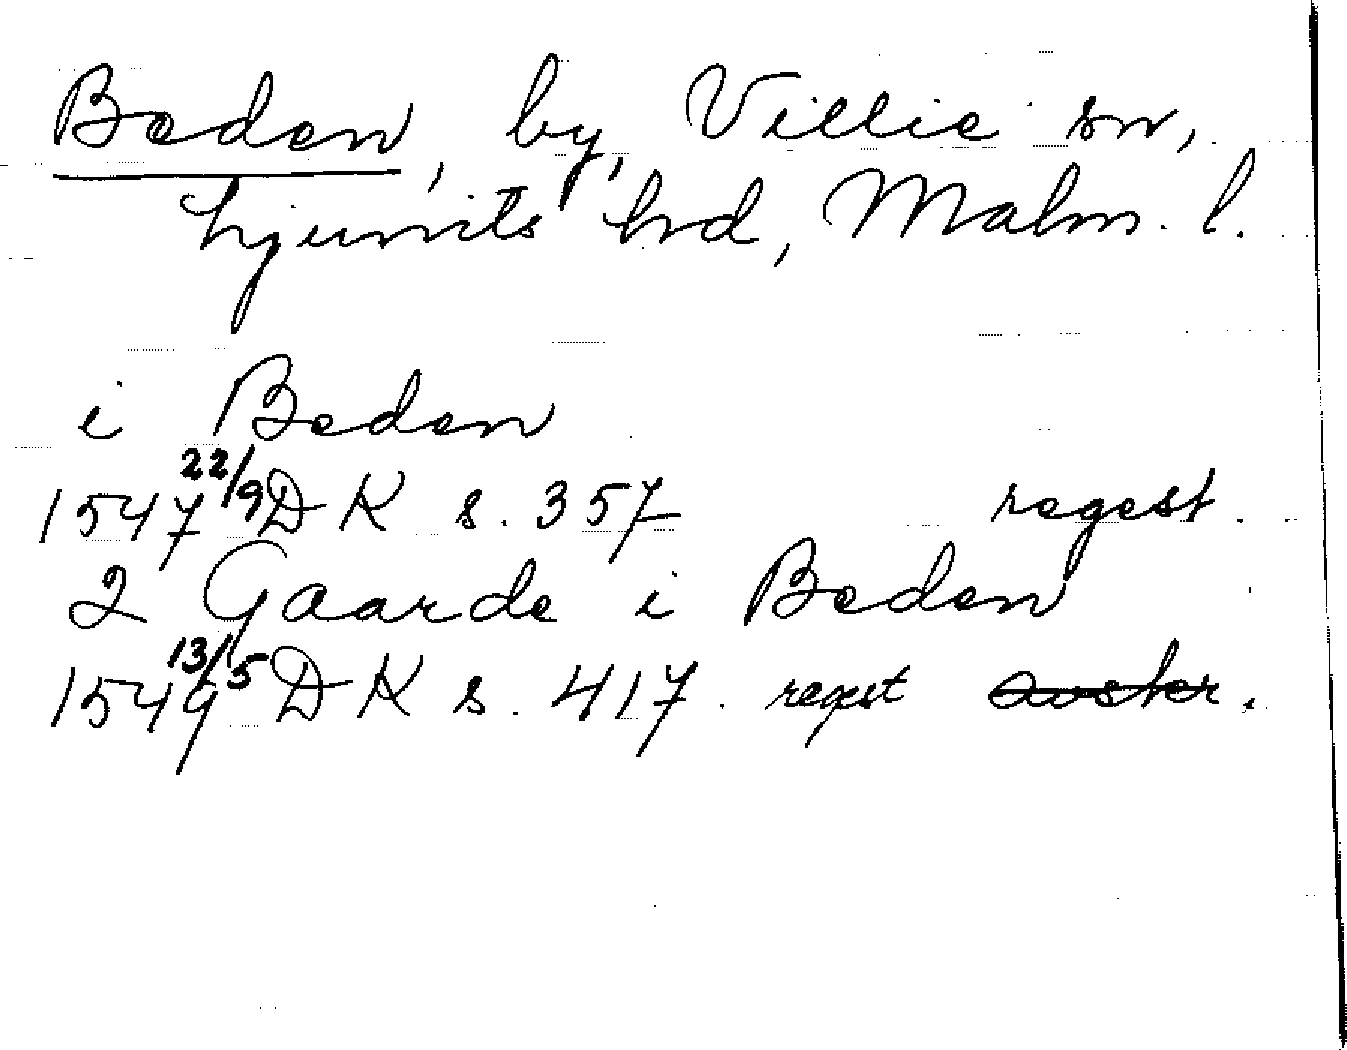 Beden, by, Villie sn,
Ljunits hd, Malm. l.
i Beden
1547 22/9 DK s. 357 regest.
2 Gaarde i Beden
1549 13/5 DK s. 417. regest avskr.